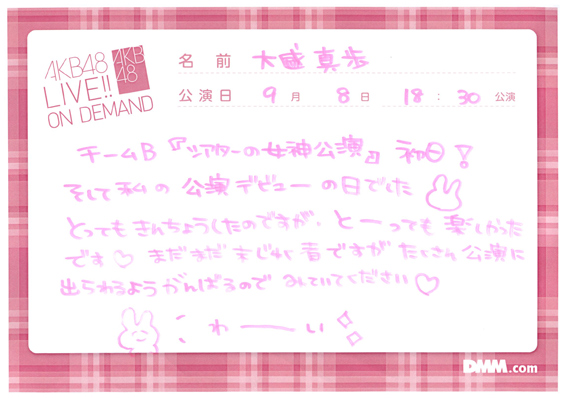 AKB48
LIVE!!
ON DEMAND
AKB
48
名前 大盛真歩
公演日 9月 8日 18:30公演
チームB『シアターの女神公演』初日!
そして私の公演デビューの日でした
とってもきんちょうしたのですが、とーっても楽しかった
です♡ まだまだ未じゅく者ですがたくさん公演に
出られるようがんばるのでみていてください♡
わーい
DMM.com